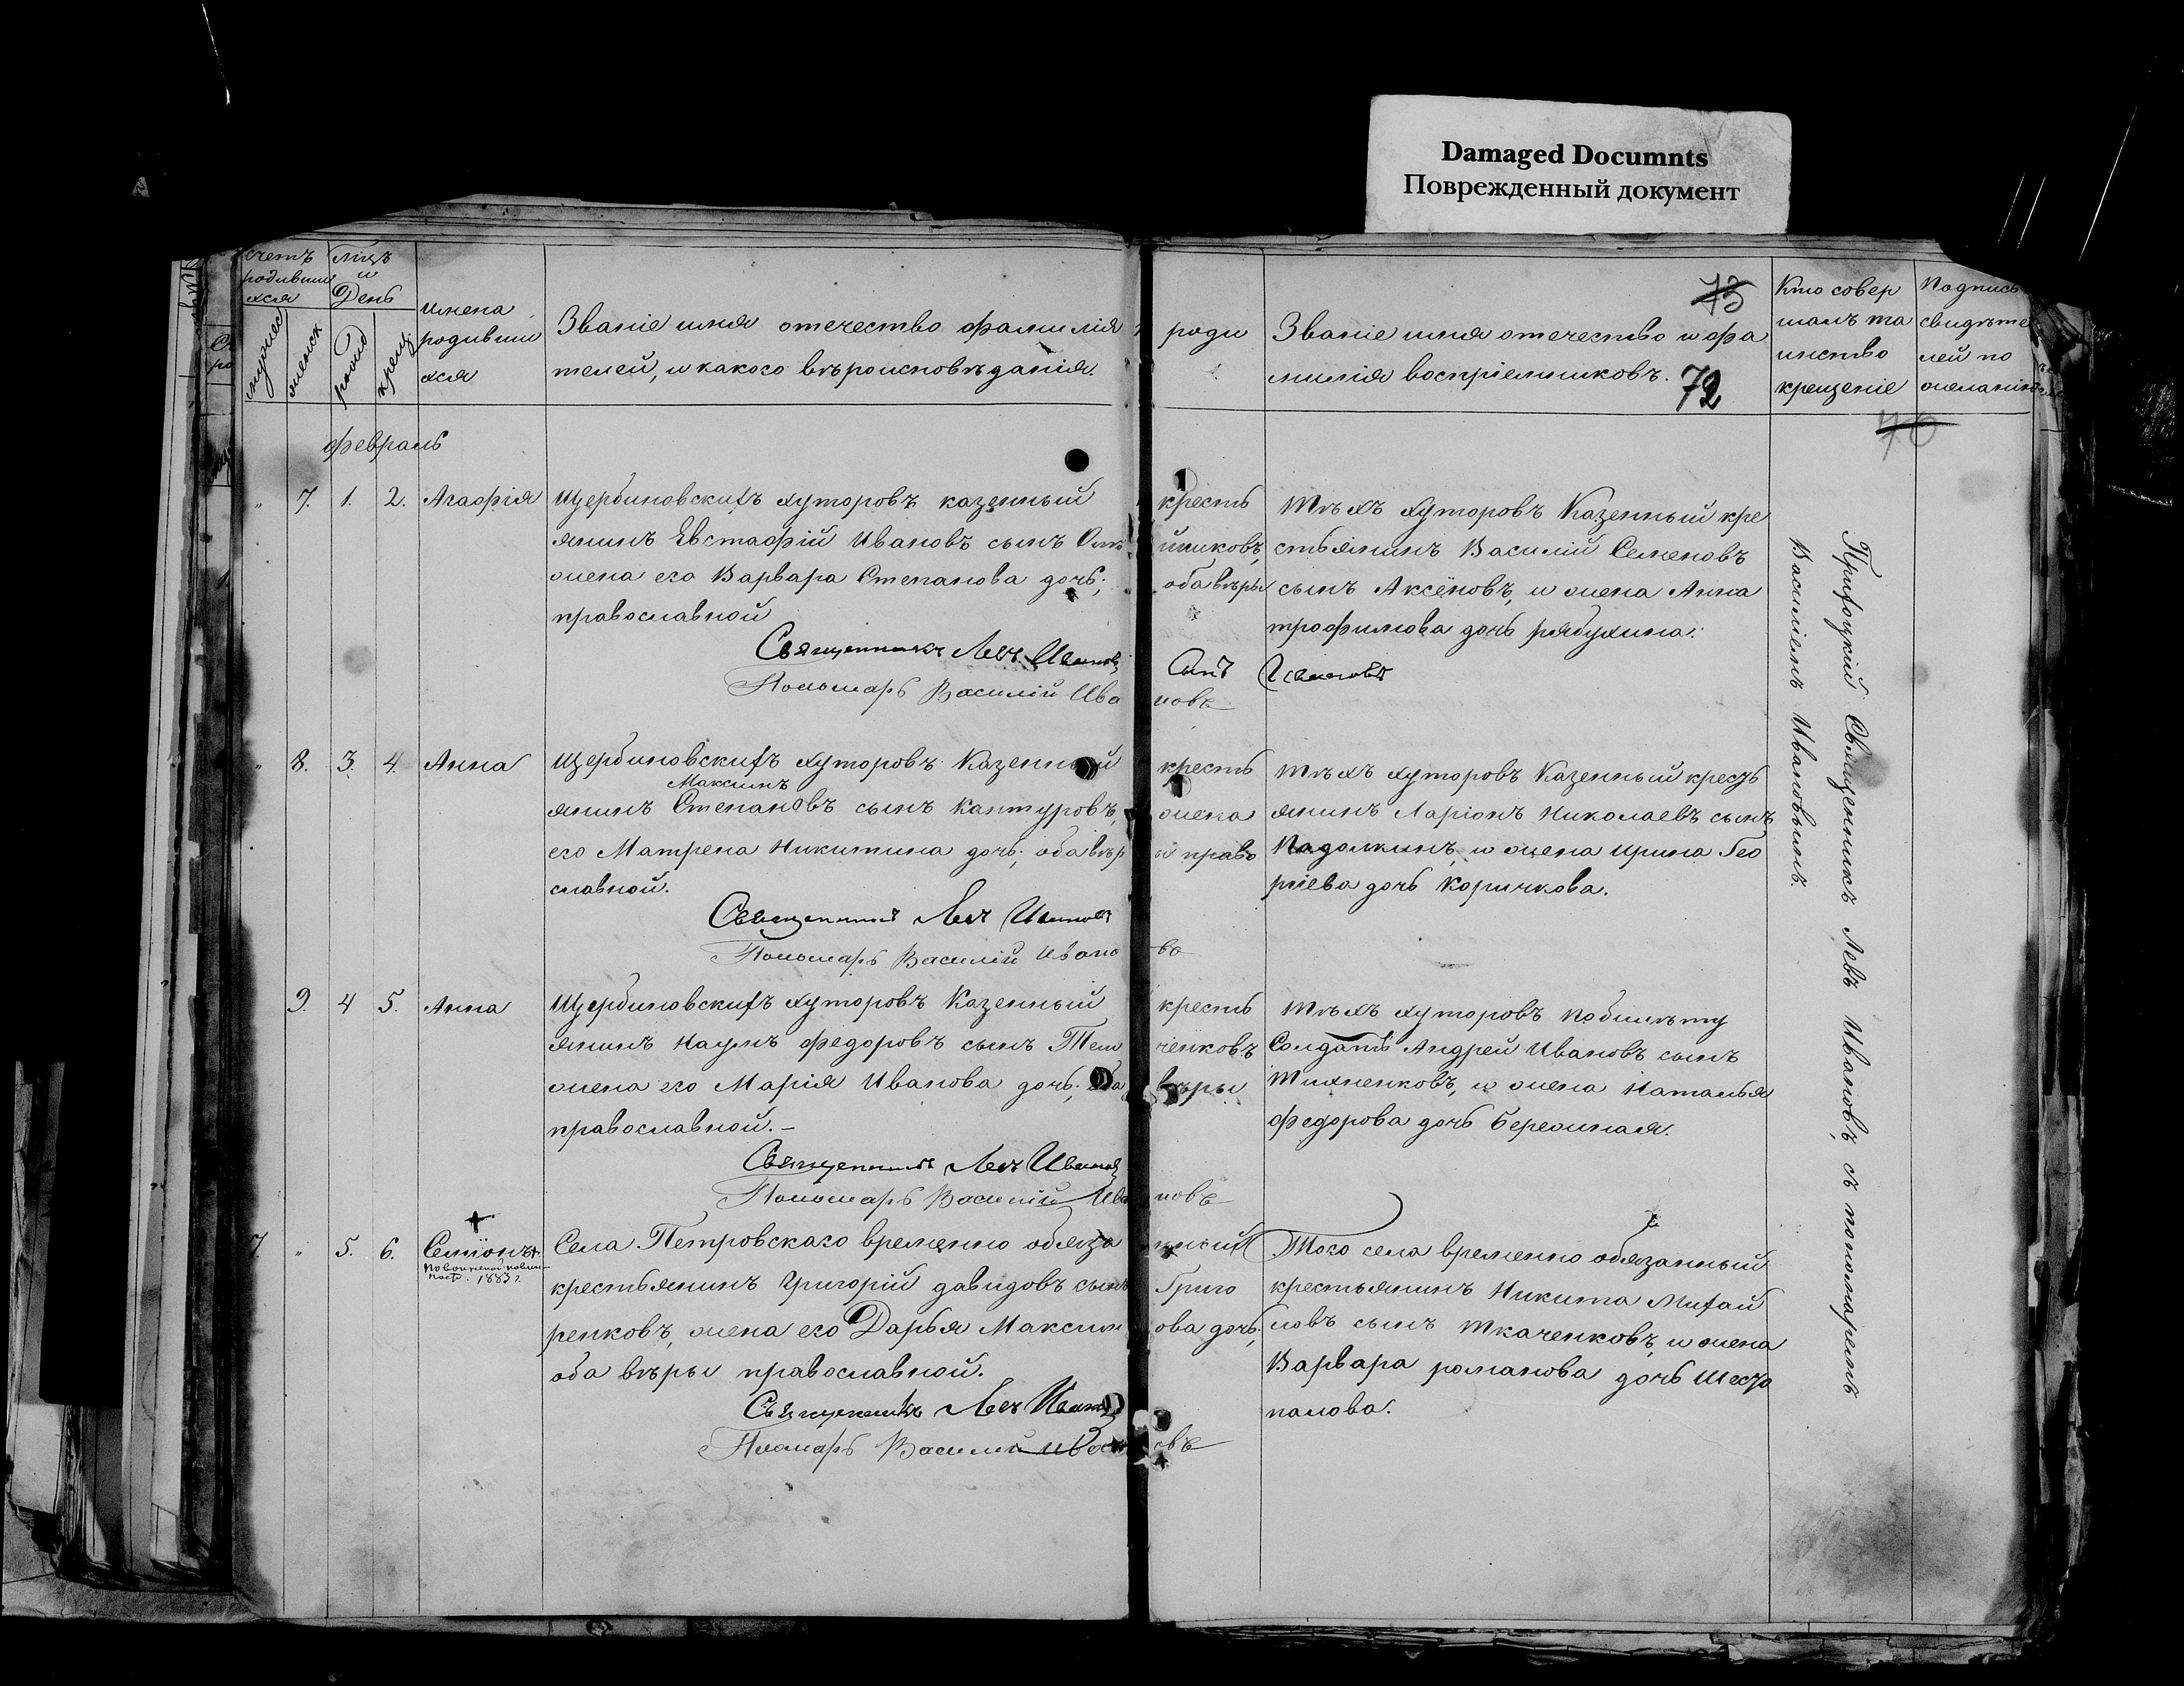 Damaged Documnts
Поврежденный документ
счетъ родивши хся
мцъ и День
мужес
женск
рожд
крещ
имена родивши хся
Званіе имя отечество фамилія роди
телей, и какого вѣроисповѣданія.
73
Званіе имя отечество и фа
милія воспріемниковъ. 72
Кто совер
шалъ та
инство
крещеніе
Подпись
свидѣте
лей по
желанію
40
февраль
" 7. 1. 2. Агафія
Щербиновскихъ хуторовъ казенный кресть
янинъ Евстафій Ивановъ сынъ
жена его Варвара Степанова дочь; оба вѣры
православной
Священникъ Левъ Ивановъ
Пономарь Василій Ивановъ
Тѣхъ хуторовъ Казенный кре
стьянинъ Василій Семеновъ
сынъ Аксёновъ, и жена Анна
трофимова дочь рябухина.
" 8. 3. 4. Анна
Щербиновскихъ хуторовъ Казенный кресть
Максимъ
янинъ Степановъ сынъ Кантуровъ, жена
его Матрена Никитина дочь; оба вѣры право
славной.
Священникъ Левъ Ивановъ
Пономарь Василій Иванов
Тѣхъ хуторовъ Казенный кресть
янинъ Ларіонъ Николаевъ сынъ
Падолкинъ, и жена Ирина Гео
ргіева дочь Коричкова.
9. 4 5. Анна
Щербиновскихъ хуторовъ Казенный кресть
янинъ Наумъ Федоровъ сынъ
жена его Марія Иванова дочь; оба вѣры
православной. –
Священникъ Левъ Ивановъ
Пономарь Василій Ивановъ
Тѣхъ хуторовъ побилѣту
Солдатъ Андрей Ивановъ сынъ
Тихненковъ, и жена Наталья
Федорова дочь Бережная.
7. " 5. 6. Семіонъ
По воинской повин–
ност. 1883 г.
Села Петровскаго временно обяза нный
крестьянинъ Григорій давидовъ сынъ Григо
ренковъ, жена его Дарья Максимова дочь;
оба вѣры православной.
Священникъ Левъ Ивановъ
Пономарь Василій Ивановъ
Того села временно обязанный
крестьянинъ Никита Михай
ловъ сынъ Ткаченковъ, и жена
Варвара романова дочь Шехо
палова.
Приходскій Священникъ Левъ Ивановъ, съ пономаремъ
Василіемъ Ивановымъ.